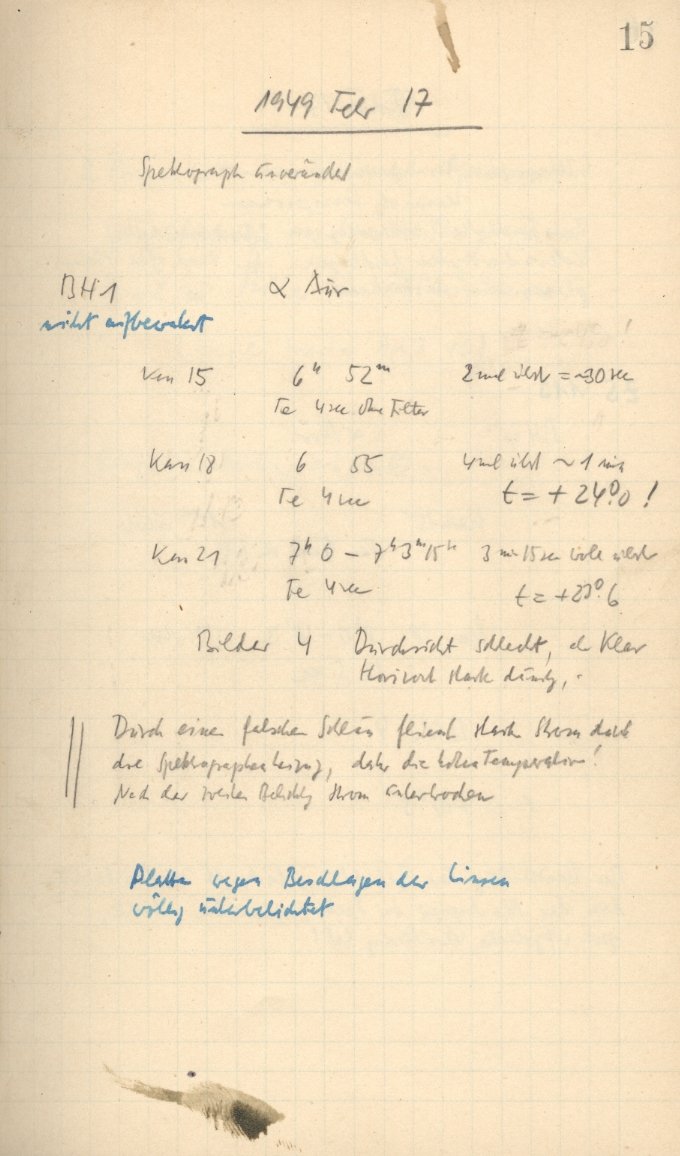 15
1949 Febr 17
Spektrograph unverändert
BH1 α Aur
nicht aufbewahrt
Kass 15 6ʰ 52ᵐ 2 mal übst = ~30 sec
Te 4 sec ohne Filter
Kass 18 6 55 4 mal übst ~ 1 min
Te 4 sec t = + 24°.0 !
Kass 21 7ʰ 0 – 7ʰ 3ᵐ 15ˢ 3 min 15 sec übst
Te 4 sec t = +23°.6
Bilder 4 Durchsicht schlecht, Klar
Horizont stark dunstig,
Durch einen falschen fliesst stark Strom durch
die Spektrographenheizung, daher die hohen Temperaturen!
Nach der zweiten Belichtg Strom unterbrochen
Platten wegen Beschlagen der Linsen
völlig unterbelichtet